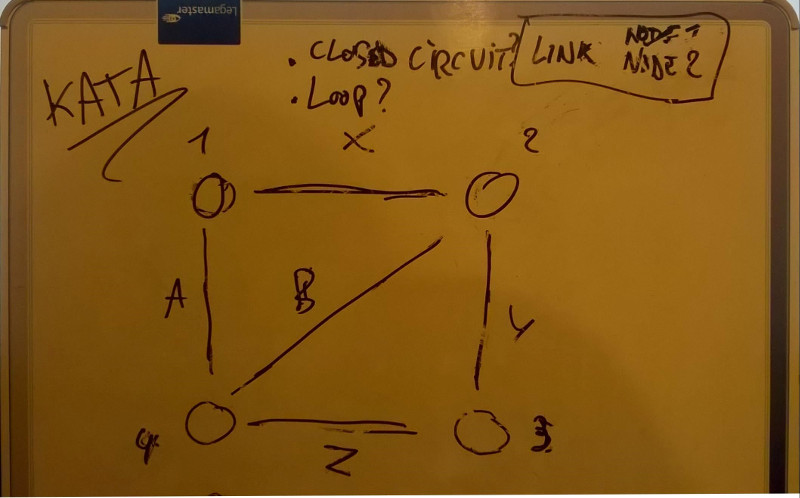 Legamaster
KATA
. CLOSED CIRCUIT?
. LOOP?
LINK NODE 1
NODE 2
1 X 2
A B Y
4 Z 3